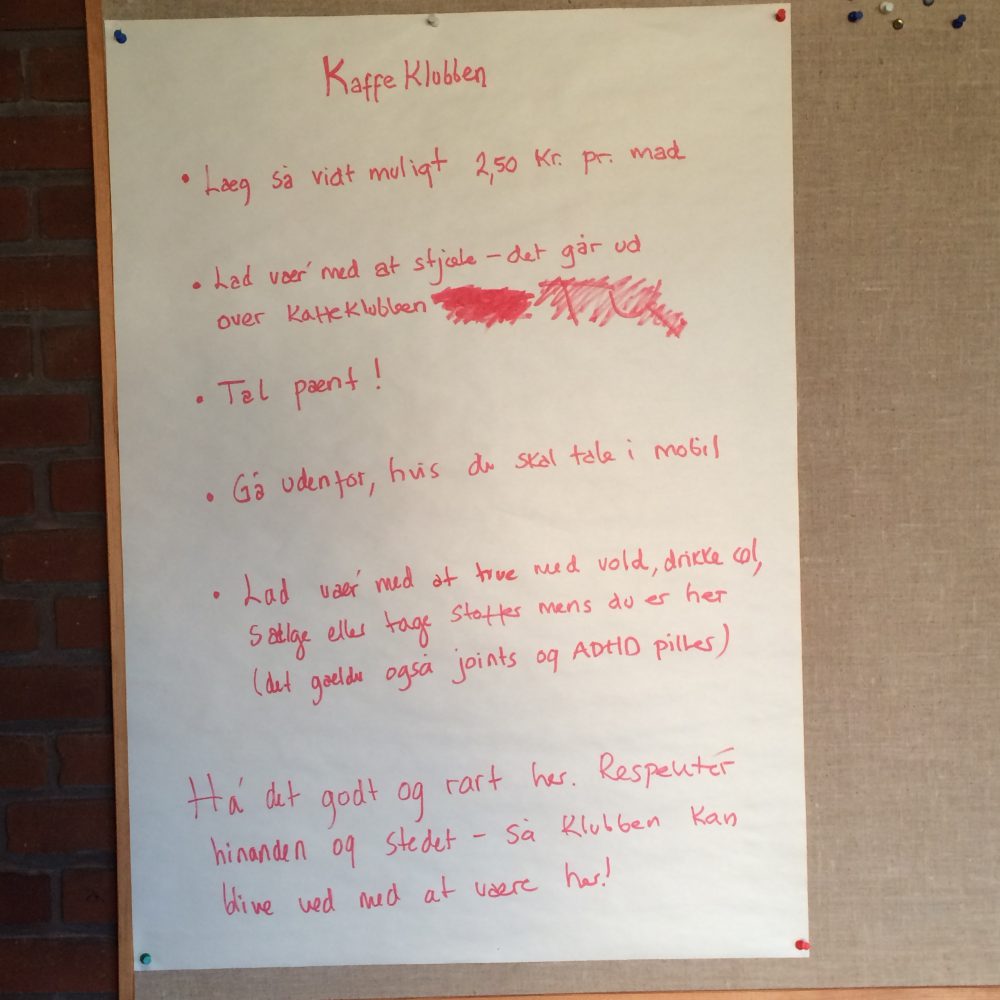 Kaffe Klubben
• Læg så vidt muligt 2,50 Kr. pr. mad
• Lad vær' med at stjæle – det går ud
over KaffeKlubben
• Tal pænt !
• Gå udenfor, hvis du skal tale i mobil
• Lad vær' med at true med vold, drikke øl,
sælge eller tage stoffer mens du er her
(det gælder også joints og ADHD piller)
Ha' det godt og rart her. Respektér
hinanden og stedet – så Klubben Kan
blive ved med at være her!